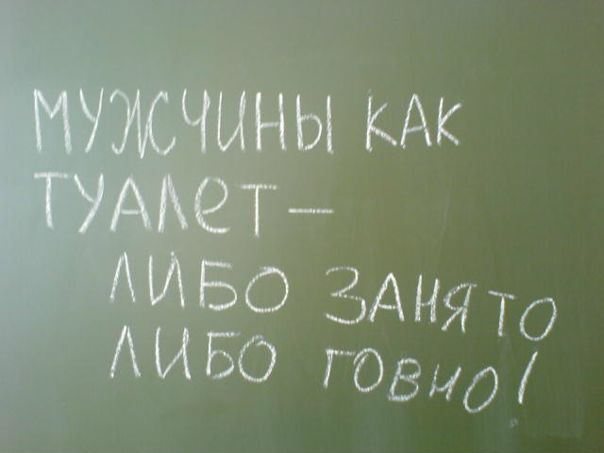 МУЖЧИНЫ КАК
ТУАЛЕТ—
ЛИБО ЗАНЯТО
ЛИБО ГОВНО!